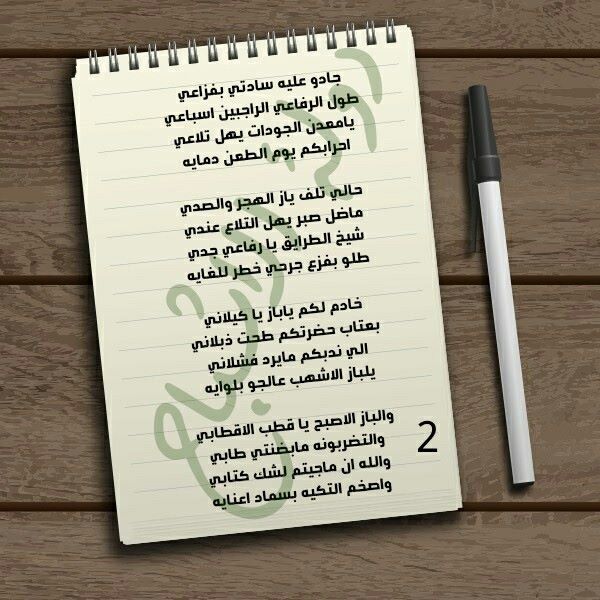 جادو عليه سادتي بفزاعي
طول الرفاعي الراجبين اسباعي
يامعدن الجودات يهل تلاعي
احرابكم يوم الطعن دمايه
حالي تلف ياز الهجر والصدي
ماضل صبر يهل التلاع عندي
شيخ الطرايق يا رفاعي جدي
طلو بفزع جرحي خطر للغايه
خادم لكم ياباز يا كيلاني
بعتاب حضرتكم طحت ذبلاني
الي ندبكم مايرد فشلاني
يلباز الاشهب عالجو بلوايه
والباز الاصبح يا قطب الاقطابي
والتضربونه مابضنتي طابي
والله ان ماجيتم لشك كتابي
واصخم التكيه بسماد اعنايه
2